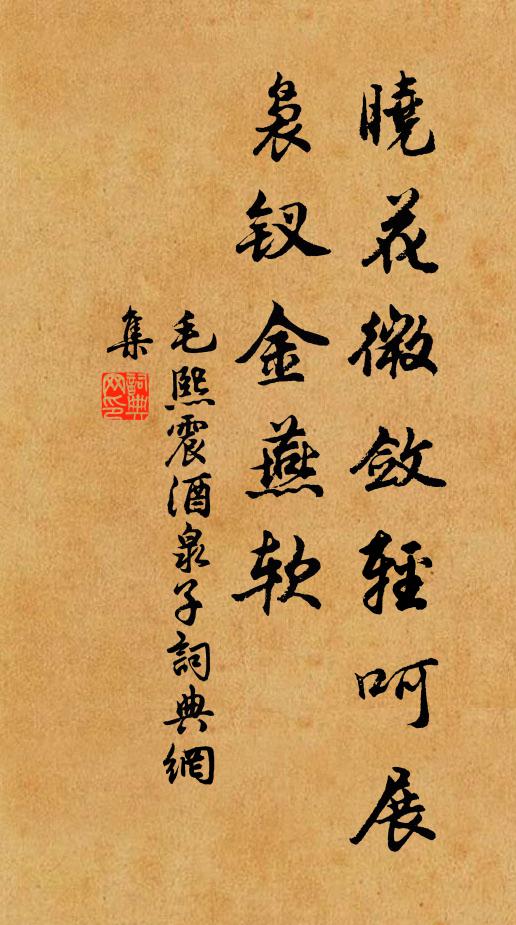 曉花微斂輕呵展
裊钗金燕軟
毛熙震酒泉子詞典網
集
詞典
网印